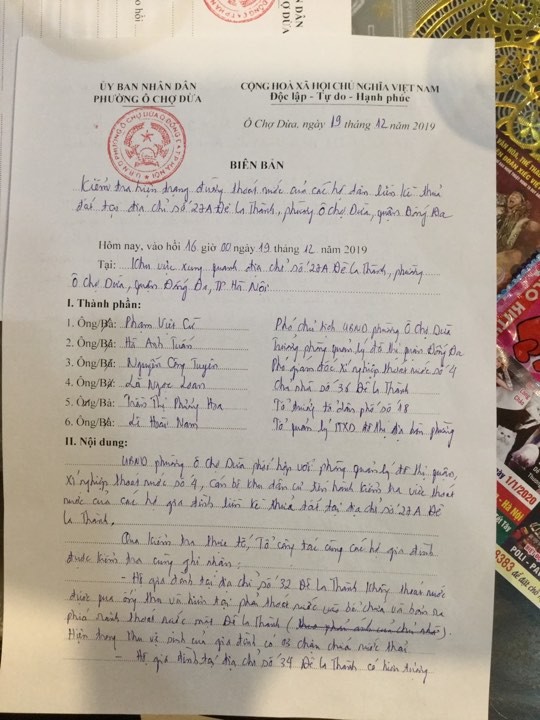 ỦY BAN NHÂN DÂN
PHƯỜNG Ô CHỢ DỪA
CỘNG HOÀ XÃ HỘI CHỦ NGHĨA VIỆT NAM
Độc lập - Tự do - Hạnh phúc
Ô Chợ Dừa, ngày 19 tháng 12 năm 2019
BIÊN BẢN
Kiểm tra hiện trạng đường thoát nước của các hộ dân liền kề thửa
đất tại địa chỉ số 27A Đê La Thành, phường Ô Chợ Dừa, quận Đống Đa
Hôm nay, vào hồi 16 giờ 00 ngày 19 tháng 12 năm 2019
Tại: Khu vực xung quanh địa chỉ số 27A Đê La Thành, phường
Ô Chợ Dừa, quận Đống Đa, TP Hà Nội
I. Thành phần:
1. Ông/Bà: Phạm Viết Cừ Phó chủ tịch UBND phường Ô Chợ Dừa
2. Ông/Bà: Hà Anh Tuấn Trưởng phòng quản lý đô thị quận Đống Đa
3. Ông/Bà: Nguyễn Công Tuyên Phó giám đốc Xí nghiệp thoát nước số 4
4. Ông/Bà: Lã Ngọc Loan Chủ nhà số 36 Đê La Thành
5. Ông/Bà: Trần Thị Phương Hoa Tổ trưởng tổ dân phố số 18
6. Ông/Bà: Lê Hoài Nam Tổ quản lý TTXD đô thị địa bàn phường
II. Nội dung:
UBND phường Ô Chợ Dừa phối hợp với phòng quản lý đô thị quận,
Xí nghiệp thoát nước số 4, Cán bộ khu dân cư tiến hành kiểm tra việc thoát
nước của các hộ gia đình liền kề thửa đất tại địa chỉ số 27A Đê
La Thành.
Qua kiểm tra thực tế, Tổ công tác cùng các hộ gia đình
được kiểm tra cùng ghi nhận:
- Hộ gia đình tại địa chỉ số 32 Đê La Thành không thoát nước
được qua ống thu và hiện tại phải thoát nước vào bể chứa và bơm ra
phía rãnh thoát nước mặt Đê La Thành
Hiện trong khu vệ sinh của gia đình có 03 chậu chứa nước thải
- Hộ gia đình tại địa chỉ số 34 Đê La Thành có hiện trạng